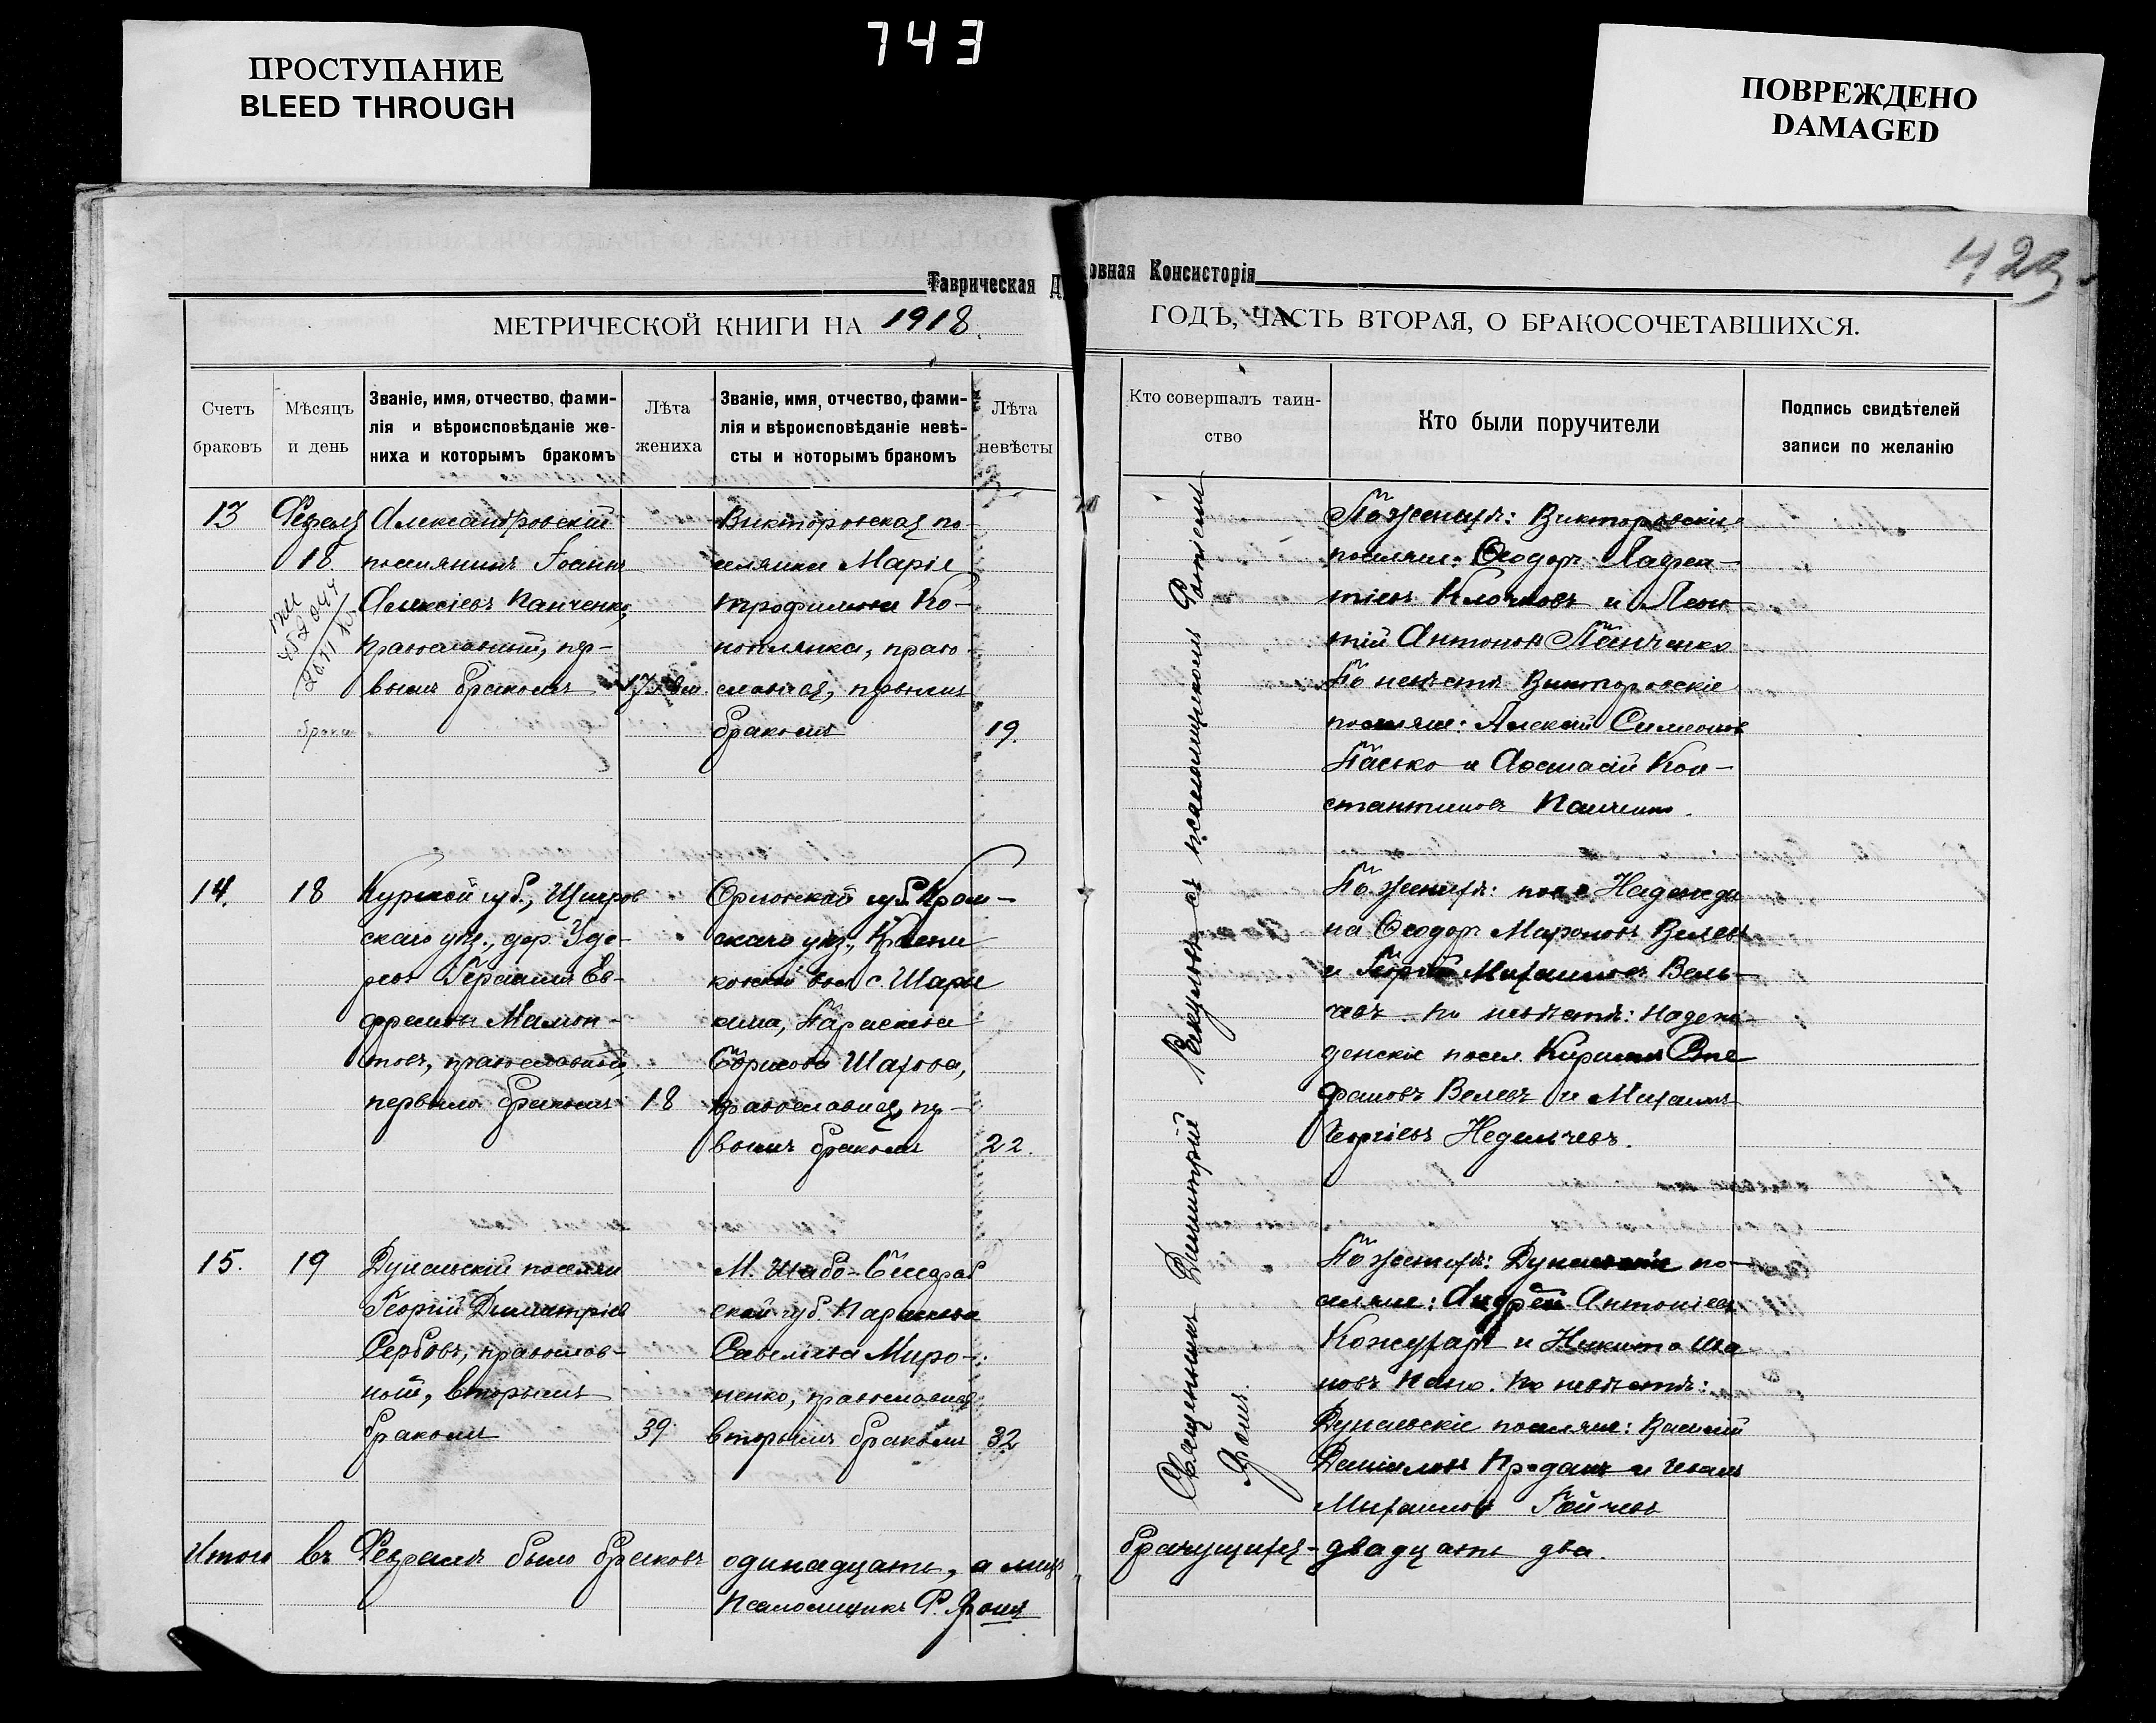 743
ПРОСТУПАНИЕ
BLEED THROUGH
ПОВРЕЖДЕНО
DAMAGED
423
Таврическая Д
овная Консисторія
МЕТРИЧЕСКОЙ КНИГИ НА 1918
ГОДЪ, ЧАСТЬ ВТОРАЯ, О БРАКОСОЧЕТАВШИХСЯ.
Счетъ
браковъ
Мѣсяцъ
и день
Званіе, имя, отчество, фами-
лія и вѣроисповѣданіе же-
ниха и которымъ бракомъ
Лѣта
жениха
Званіе, имя, отчество, фами-
лія и вѣроисповѣданіе невѣ-
сты и которымъ бракомъ
Лѣта
невѣсты
Кто совершалъ таин-
ство
Кто были поручители
Подпись свидѣтелей
записи по желанію
13
18
Александровскій
поселянинъ Іоаннъ
Алексіевъ Панченко,
православный, пер-
вымъ бракомъ
Викторовская по-
селянка Марія
Трофимова Ко-
ноплянка, право-
славная, первымъ
бракомъ
19.
По женихѣ: Викторовскіе
поселяне: Ѳеодоръ Лаврен-
тіевъ Клочковъ и Леон-
тій Антоновъ Панченко
По невѣстѣ Викторовскіе
поселяне: Алексій Симеоновъ
Пасько и Аѳанасій Кон-
стантиновъ Панченко.
14.
18
Курской губ., Щигров
скаго уѣз., дер. Уде-
рево Герасимъ Ев-
фремовъ Мамон-
товъ, православный,
первымъ бракомъ
18
Орловской губ. Кром-
скаго уѣз.,
вол. с. Шары
кина, Параскева
Борисова Шахова,
православная, пер-
вымъ бракомъ
22.
По женихѣ: пос. Надежди
на Ѳеодоръ Велевъ
и Георгій Михаиловъ Вель-
чевъ. По невѣстѣ: Надеж-
денскіе посел. Кириллъ Сте
фановъ Велевъ и Михаилъ
Георгіевъ Недельчевъ.
15.
19
Дунаевскій поселян
Георгій Димитріев
Сербовъ, православ-
ный, вторымъ
бракомъ
39.
М. Шабо-Бессараб
ской губ. Параскева
Савельева Миро-
ненко, православная
вторымъ бракомъ
32
По женихѣ: Дунаевскіе по-
селяне: Андрей Антоніевъ
Кожухарь и Никита Ива
новъ Пано. По невѣстѣ:
Дунаевскіе поселяне: Василій
Даниловъ Проданъ и Иванъ
Михаиловъ Гайчевъ
Священникъ Димитрій съ псаломщикомъ
Итого въ Февралѣ было браковъ одинадцать, а лицъ
брачущихся - двадцать два.
Псаломщикъ